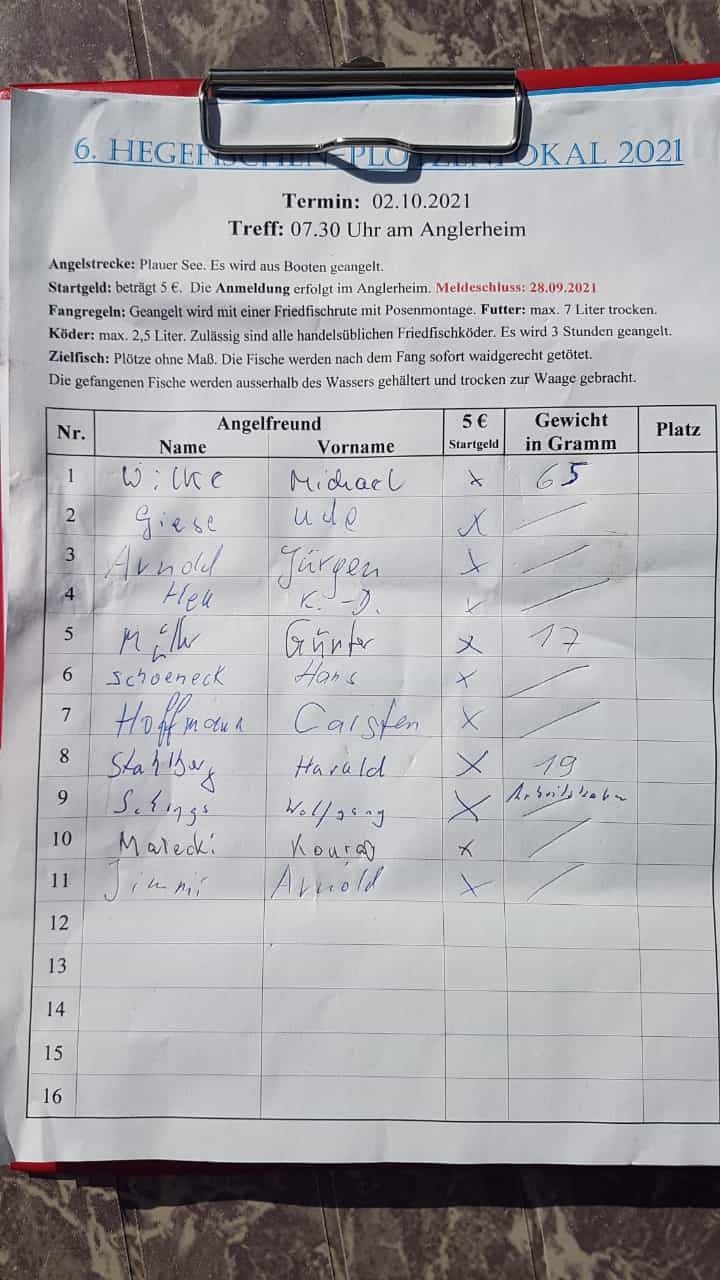 6. HEGEFISCHEN-PLÖTZENPOKAL 2021
Termin: 02.10.2021
Treff: 07.30 Uhr am Anglerheim
Angelstrecke: Plauer See. Es wird aus Booten geangelt.
Startgeld: beträgt 5 €. Die Anmeldung erfolgt im Anglerheim. Meldeschluss: 28.09.2021
Fangregeln: Geangelt wird mit einer Friedfischrute mit Posenmontage. Futter: max. 7 Liter trocken.
Köder: max. 2,5 Liter. Zulässig sind alle handelsüblichen Friedfischköder. Es wird 3 Stunden geangelt.
Zielfisch: Plötze ohne Maß. Die Fische werden nach dem Fang sofort waidgerecht getötet.
Die gefangenen Fische werden ausserhalb des Wassers gehältert und trocken zur Waage gebracht.
Nr. Angelfreund 5 € Gewicht Platz
Name Vorname Startgeld in Gramm
1 Wilke Michael x 65
2 Giese Udo x /
3 Arnold Jürgen x /
4 K.-D. x /
5 Müller Günter x 17
6 Schoeneck Hans x /
7 Hoffmann Carsten x /
8 Stahlberg Harald x 19
9 Wolfgang x
10 Malecki Konrad x /
11 Jimmi Arnold x /
12
13
14
15
16